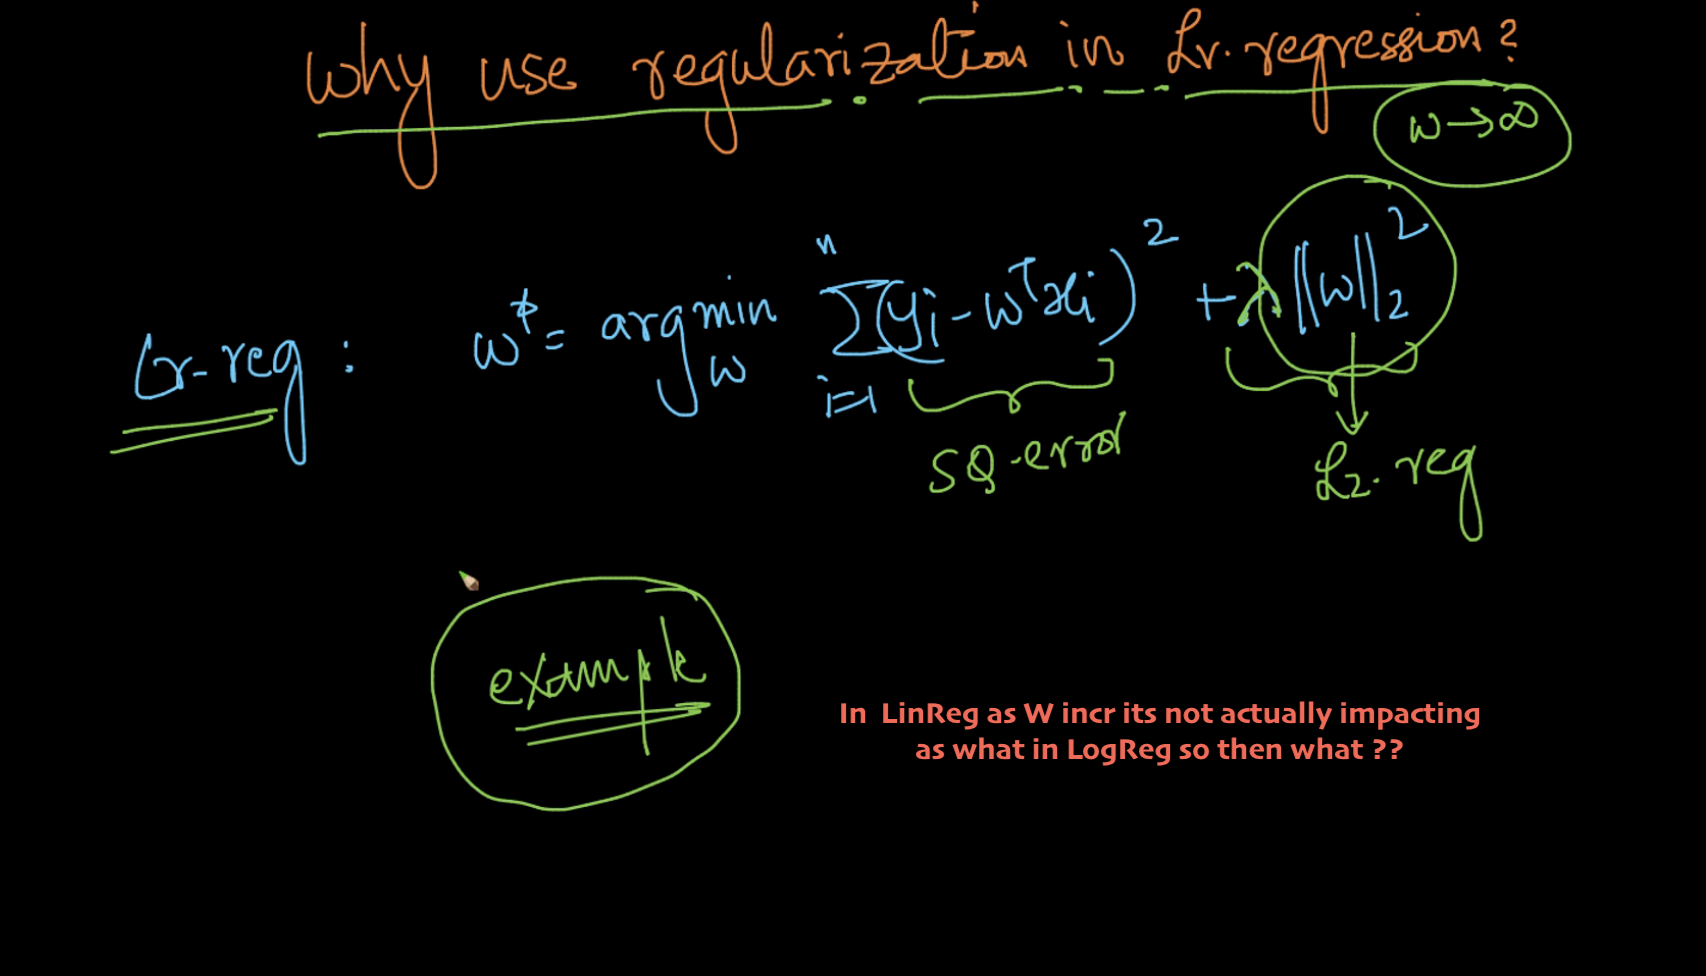 Why use regularization in Lr. regression?
w→∞
Lr-reg : w* = argmin_w Σ_{i=1}^{n} (yi - w^T xi)^2 + λ ||w||_2^2
SQ-error
L2-reg
example
In LinReg as W incr its not actually impacting
as what in LogReg so then what ??